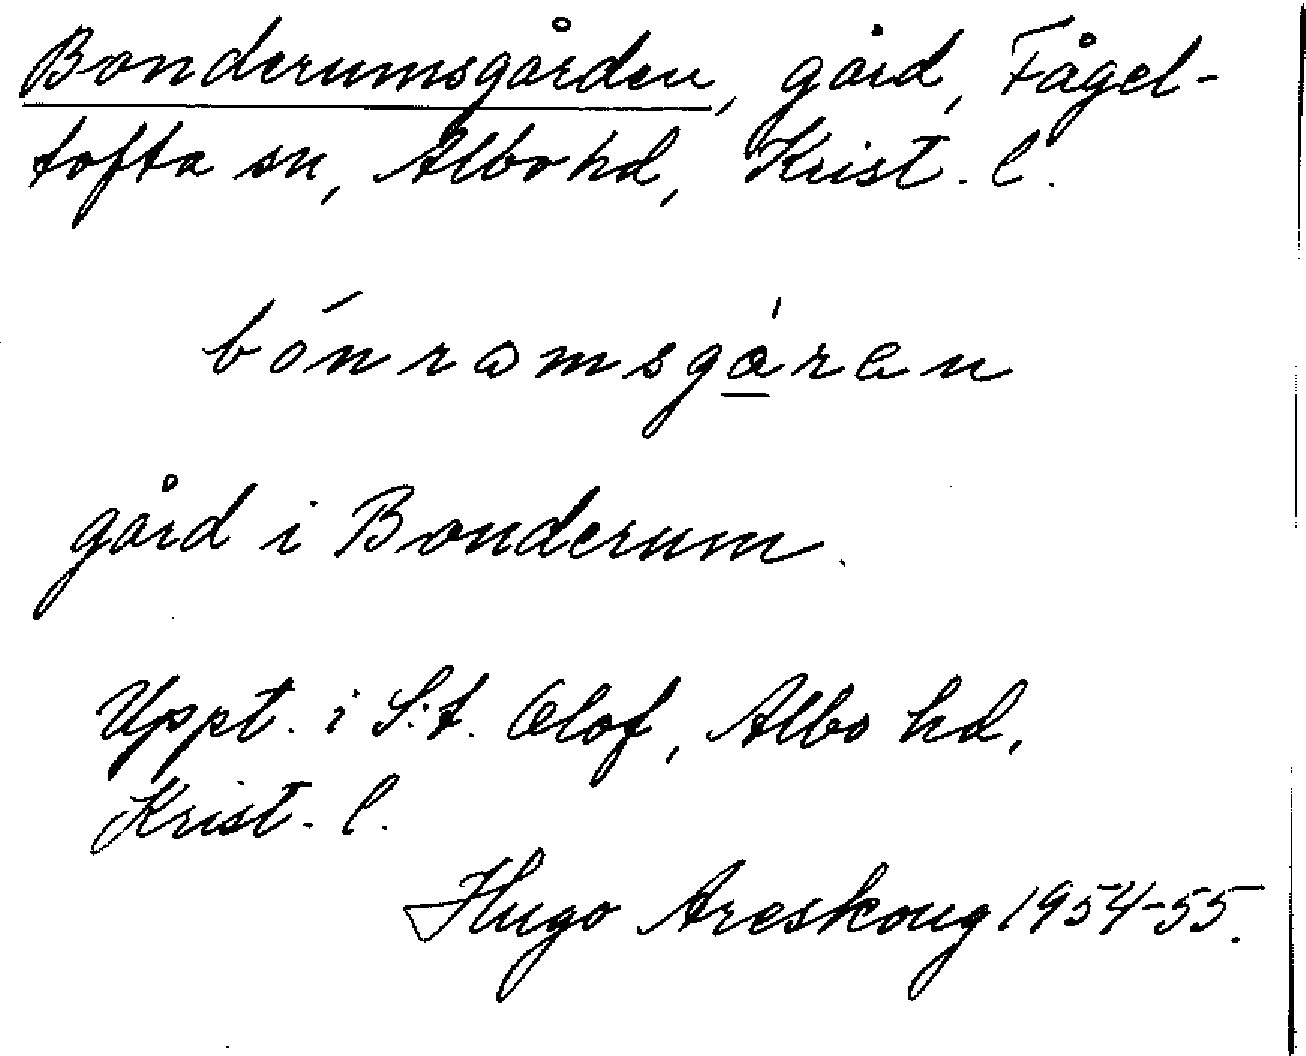 Bonderumsgården, gård, Fågel-
tofta sn, Albo hd, Krist. l.
bónrɷmsgá̱rɐn
gård i Bonderum.
Uppt. i S:t. Olof, Albo hd,
Krist. l.
Hugo Areskoug 1954-55.